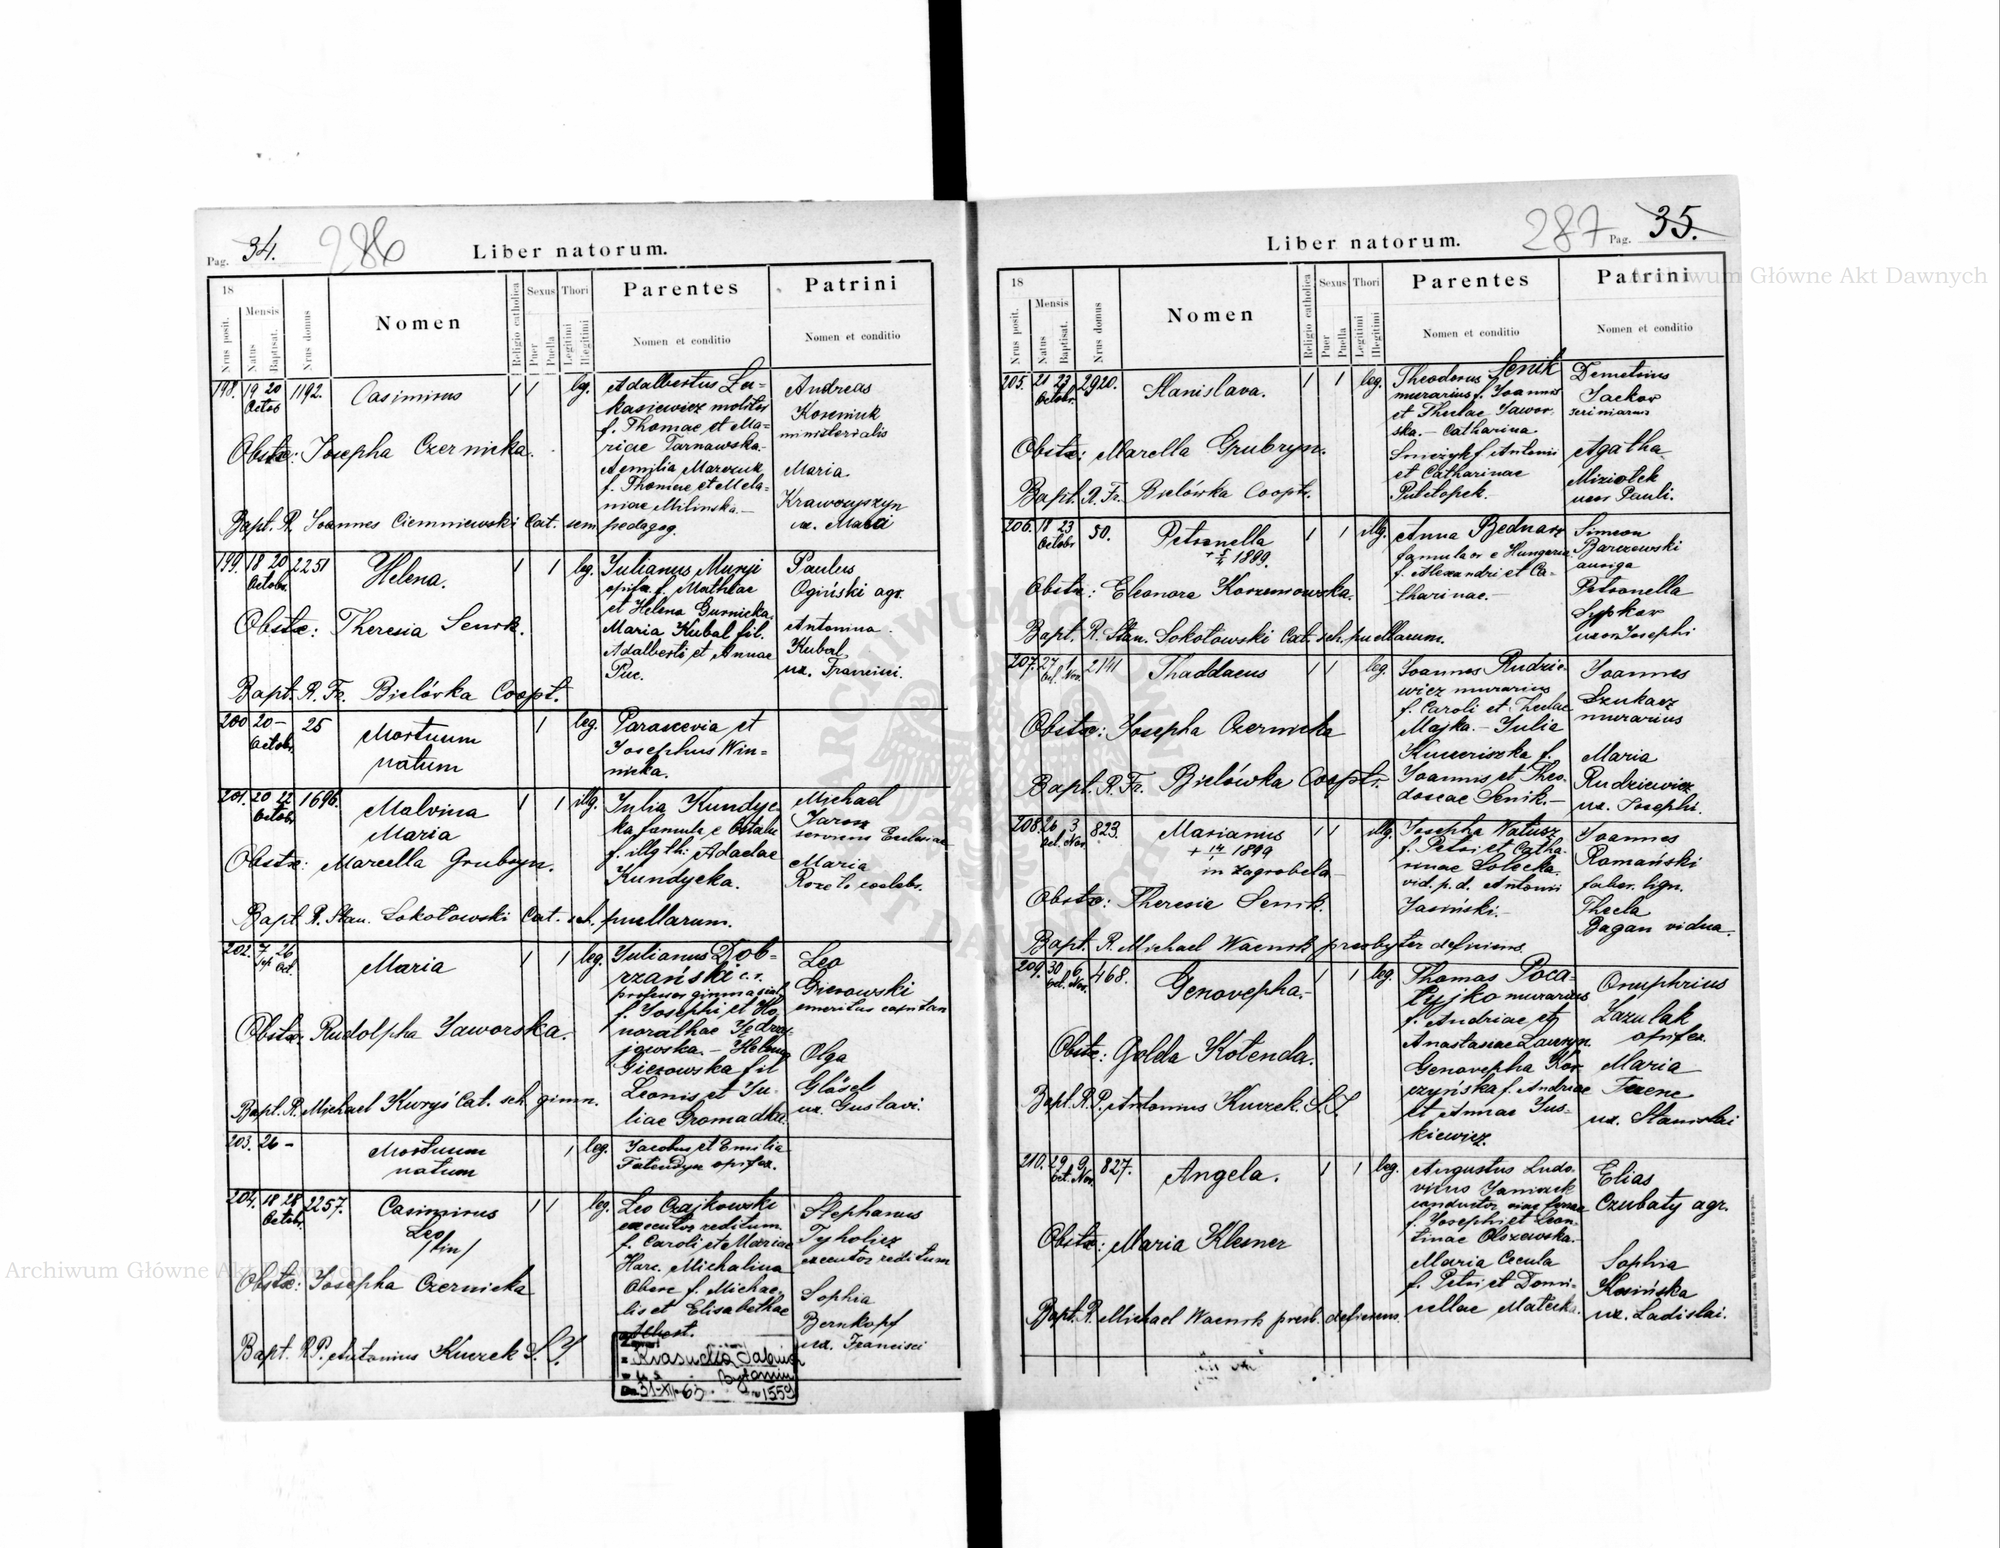 Pag. 34. 286 Liber natorum.
18
Nrus posit.
Mensis
Natus
Baptisat.
Nrus domus
Nomen
Religio catholica
Sexus
Puer
Puella
Thori
Legitimi
Illegitimi
Parentes
Nomen et conditio
Patrini
Nomen et conditio
198. 19 20 1192. Casimirus 1 1 leg.
Octob
Obstx: Josepha Czernicka.
Bapt. R. Joannes Ciemniewski Cat. sem. pedagog.
Adalbertus Lu-
kasiewicz molitor
f. Thomae et Ma-
riae Tarnawska.
Aemilia Marczuk
f. Thomae et Mela-
niae Milinska.—
Andreas
Koreniuk
ministerialis
Maria
Krawczyszyn
ux.
199. 18 20 2251 Helena. 1 1 leg.
Octobr.
Obstx: Theresia Senik.
Bapt. R. Fr. Bielówka Coopt.
Julianus
opifx. f. Mathiae
et Helena Gurnicka.
Maria Kubal fil.
Adalberti et Annae
Puc.
Paulus
Ogiński agr.
Antonina
Kubal
ux. Francisci.
200 20 — 25 Mortuum 1 leg.
Octobr. natum
Parascevia et
Josephus Win-
nicka.
201. 20 22 1696. Malvina 1 1 illg.
Octobr. Maria
Obstx: Marcella Grubryn.
Bapt. R. Stan. Sokołowski Cat. sch. puellarum.
Julia Kundyc-
ka famula e
f. illg th: Adaelae
Kundycka.
Michael
Jarosz
serviens
Maria
caelebs.
202. 7 26 Maria 1 1 leg.
Sep. Oct.
Obstx. Rudolpha Jaworska.
Bapt. R. Michael Kuryś Cat. sch. gimn.
Julianus Dob-
rzański c.r.
professor gimnasial.
f. Josephi et Ho-
norathae Jędrze-
jowska. — Helena
Gierowska fil
Leonis et Ju-
liae Gromadka.
Leo
Gierowski
emeritus capitan
Olga
Gläsel
ux. Gustavi.
203. 26 — Mortuum 1 leg.
natum
Jacobus et Emilia
opifex.
204. 18 28 2257. Casimirus 1 1 leg.
Octobr. Leo
/bin/
Obstx: Josepha Czernicka
Bapt. R.P. Antonius Kuczek S.J.
Leo Czajkowski
executor reditum.
f. Caroli et Mariae
Harc. Michalina
f. Michae-
lis et Elisabethae
Albert.
Stephanus
Tyholicz
executor reditum
Sophia
Bernkopf
ux. Francisci
31-XII-63 1559
Liber natorum. 287 Pag. 35.
18
Nrus posit.
Mensis
Natus
Baptisat.
Nrus domus
Nomen
Religio catholica
Sexus
Puer
Puella
Thori
Legitimi
Illegitimi
Parentes
Nomen et conditio
Patrini
Nomen et conditio
205. 21 23 2920. Stanislava. 1 1 leg.
Octobr.
Obstx: Marcella Grubryn.
Bapt. R. Fr. Bielówka Coopt.
Theodorus Senik
murarius f. Joannis
et Theclae Jawor-
ska. — Catharina
f. Antonii
et Catharinae
Demetrius
Jackow
Agatha
Miziołek
uxor Pauli.
206. 18 23 50. Petronella 1 1 illg.
Octobr 1899.
Obstx: Eleonora Korzeniowska.
Bapt. R. Stan. Sokołowski Cat. sch. puellarum.
Anna Bednarz
famula or e Hungaria
f. Alexandri et Ca-
tharinae.—
Simeon
Barszewski
auriga
Petronella
Sypkow
uxor Josephi
207. 27 1 2141 Thaddaeus 1 1 leg.
Oct. Nov.
Obstx: Josepha Czernicka
Bapt. R. Fr. Bielówka Coopt.
Joannes Rudzie-
wicz murarius
f. Caroli et Theclae
Majka. — Julia
f.
Joannis et Theo-
doseae Senik.—
Joannes
Szukacz
murarius
Maria
Rudziewicz
ux. Josephi.
208. 26 3 823. Marianus 1 1 illg.
Oct. Nov. 1899
in Zagrobela
Obstx: Theresia Senik.
Bapt. R. Michael Wacnik presbyter deficiens.
Josepha Watusz
f. Petri et Catha-
rinae Solecka.
vid. p.d. Antonii
Jasiński.—
Joannes
Romański
faber. lign.
Thecla
Bagan vidua.
209. 30 6 468. Genovepha.— 1 1 leg.
Oct. Nov.
Obstx: Golda Kotenda.
Bapt. R.P. Antonius Kuczek. S.J.
Thomas Poca-
tyjko murarius
f. Andriae et
Anastasiae Lawryn.
Genovepha Kor-
czyńska f. Andriae
et Annae Jus-
kiewicz.
Onuphrius
Zazulak
opifex.
Maria
ux. Stanislai
210. 29 9 827. Angela. 1 1 leg.
Oct. Nov.
Obstx: Maria Klesner
Bapt. R. Michael Wacnik presb. deficiens.
Augustus Ludo-
vicus Janiczek
conductor viae ferreae
f. Josephi et Leon-
tinae Olszewska.—
Maria Cecula
f. Petri et Domi-
cellae Matecka.
Elias
Czubaty agr.
Sophia
Kosińska
ux. Ladislai.
Archiwum Główne Akt Dawnych
Archiwum Główne Akt Dawnych